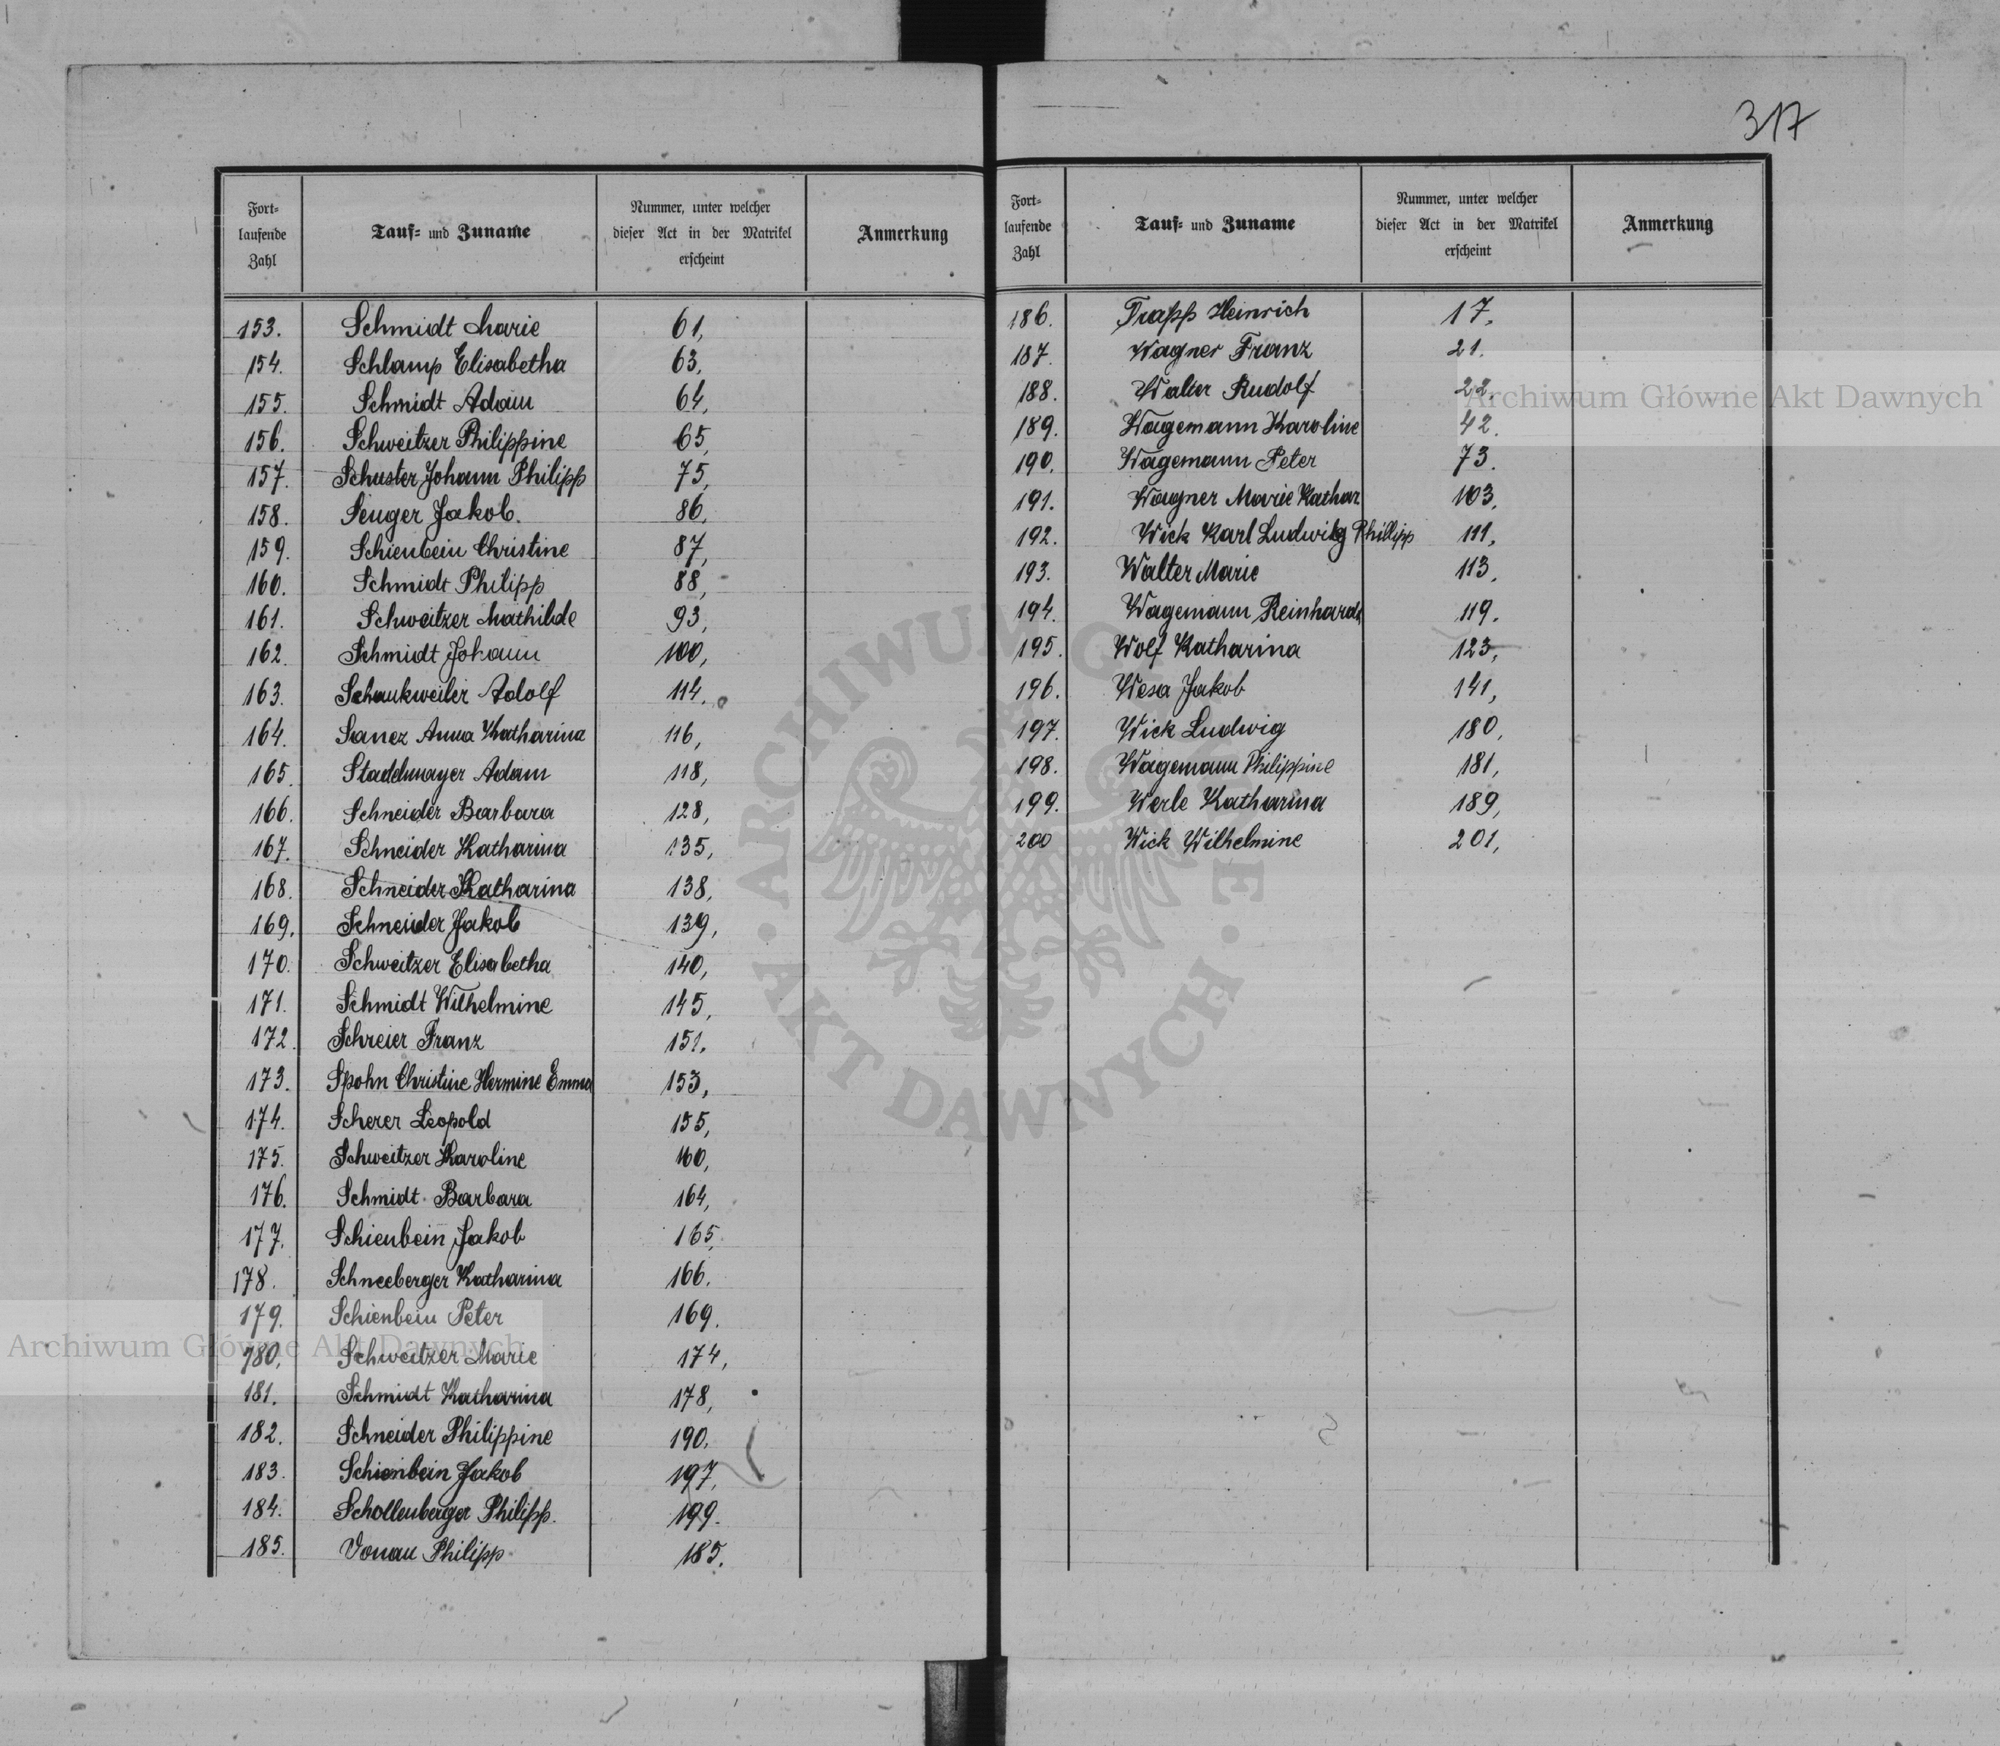 317
Fort-
laufende
Zahl
Tauf- und Zuname
Nummer, unter welcher
dieser Act in der Matrikel
erscheint
Anmerkung
153. Schmidt Marie 61,
154. Schlamp Elisabetha 63,
155. Schmidt Adam 64,
156. Schweitzer Philippine 65,
157. Schuster Johann Philipp 75,
158. Senger Jakob. 86,
159. Schienbein Christine 87,
160. Schmidt Philipp 88,
161. Schweitzer Mathilde 93,
162. Schmidt Johann 100,
163. Schankweiler Adolf 114,
164. Sanez Anna Katharina 116,
165. Stadelmayer Adam 118,
166. Schneider Barbara 128,
167. Schneider Katharina 135,
168. Schneider Katharina 138,
169. Schneider Jakob 139,
170. Schweitzer Elisabetha 140,
171. Schmidt Wilhelmine 145,
172. Schreier Franz 151,
173. Spohn Christine Hermine Emma 153,
174. Scherer Leopold 155,
175. Schweitzer Karoline 160,
176. Schmidt Barbara 164,
177. Schienbein Jakob 165,
178. Schneeberger Katharina 166.
179. Schienbein Peter 169.
180. Schweitzer Marie 174,
181. Schmidt Katharina 178,
182. Schneider Philippine 190.
183. Schienbein Jakob 197,
184. Schollenberger Philipp. 199.
185. Vonau Philipp. 185.
Fort-
laufende
Zahl
Tauf- und Zuname
Nummer, unter welcher
dieser Act in der Matrikel
erscheint
Anmerkung
186. Trapp Heinrich 17,
187. Wagner Franz 21.
188. Walter Rudolf 22.
189. Wagemann Karoline 42.
190. Wagemann Peter 73.
191. Wagner Marie Kathar. 103,
192. Wick Karl Ludwig Phillipp 111,
193. Walter Marie 113,
194. Wagemann Reinhardt 119.
195. Wolf Katharina 123,
196. Wesa Jakob 141,
197. Wick Ludwig 180,
198. Wagemann Philippine 181,
199. Werle Katharina 189,
200 Wick Wilhelmine 201,
Archiwum Główne Akt Dawnych
Archiwum Główne Akt Dawnych